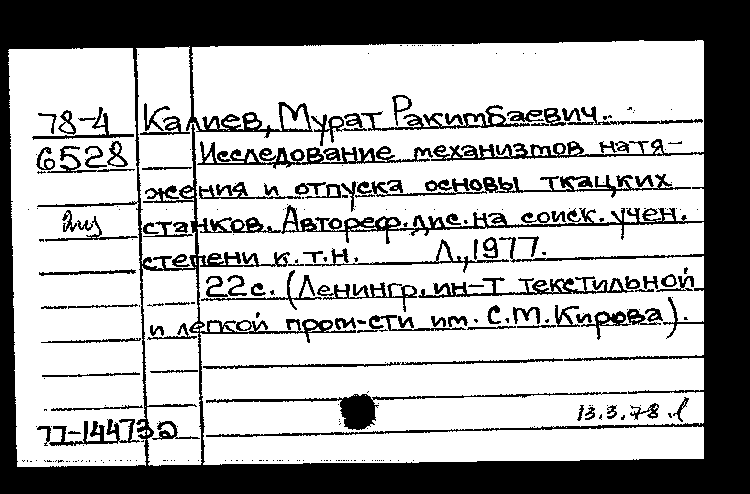 78-4 Калиев, Мурат Ракимбаевич.
6528 Исследование механизмов натя-
жения и отпуска основы ткацких
станков. Автореф. дис. на соиск. учен.
степени к.т.н. Л., 1977.
22 с. (Ленингр. ин-т текстильной
и легкой пром-сти им. С.М. Кирова).
13.3.78
77-14473